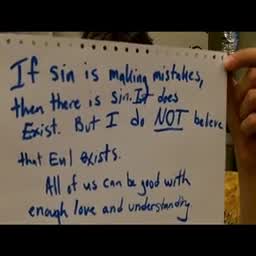 If sin is making mistakes,
then there is sin. It does
Exist. But I do NOT believe
that Evil exists.
All of us can be good with
enough love and understanding